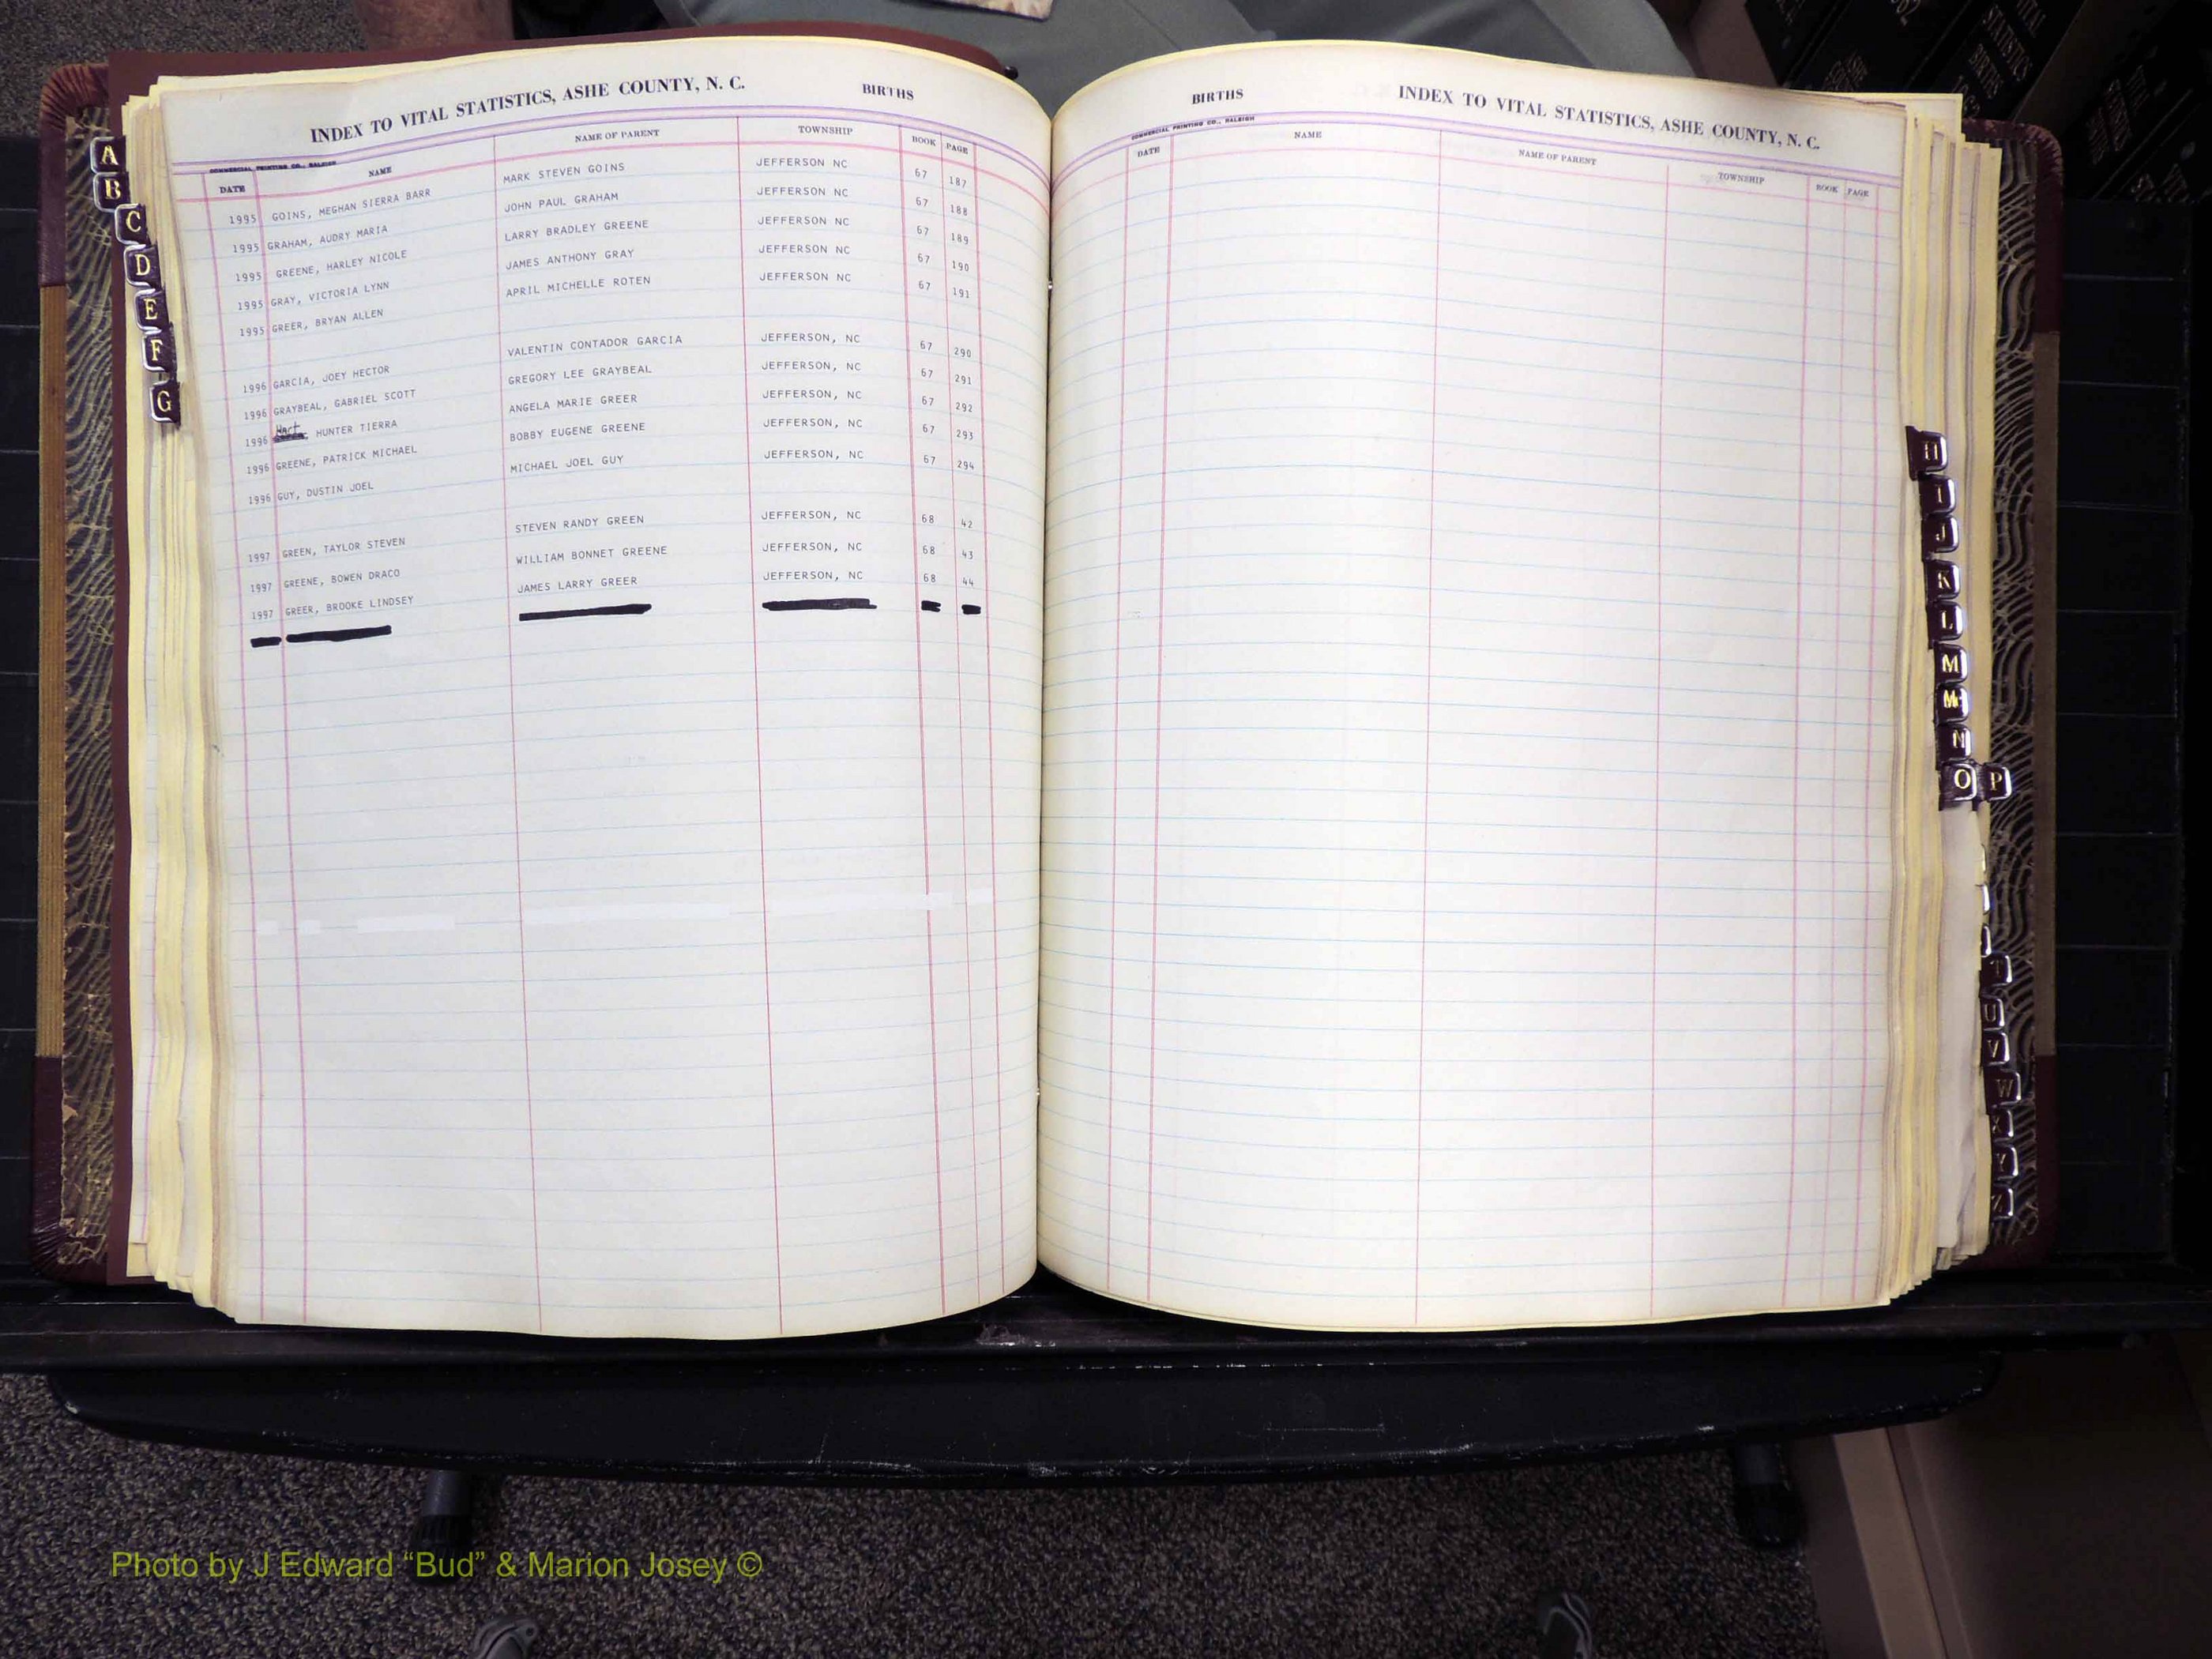 INDEX TO VITAL STATISTICS, ASHE COUNTY, N. C. BIRTHS
COMMERCIAL PRINTING CO., RALEIGH
DATE NAME NAME OF PARENT TOWNSHIP BOOK PAGE
1995 GOINS, MEGHAN SIERRA BARR MARK STEVEN GOINS JEFFERSON NC 67 187
1995 GRAHAM, AUDRY MARIA JOHN PAUL GRAHAM JEFFERSON NC 67 188
1995 GREENE, HARLEY NICOLE LARRY BRADLEY GREENE JEFFERSON NC 67 189
1995 GRAY, VICTORIA LYNN JAMES ANTHONY GRAY JEFFERSON NC 67 190
1995 GREER, BRYAN ALLEN APRIL MICHELLE ROTEN JEFFERSON NC 67 191
1996 GARCIA, JOEY HECTOR VALENTIN CONTADOR GARCIA JEFFERSON, NC 67 290
1996 GRAYBEAL, GABRIEL SCOTT GREGORY LEE GRAYBEAL JEFFERSON, NC 67 291
1996 Hart HUNTER TIERRA ANGELA MARIE GREER JEFFERSON, NC 67 292
1996 GREENE, PATRICK MICHAEL BOBBY EUGENE GREENE JEFFERSON, NC 67 293
1996 GUY, DUSTIN JOEL MICHAEL JOEL GUY JEFFERSON, NC 67 294
1997 GREEN, TAYLOR STEVEN STEVEN RANDY GREEN JEFFERSON, NC 68 42
1997 GREENE, BOWEN DRACO WILLIAM BONNET GREENE JEFFERSON, NC 68 43
1997 GREER, BROOKE LINDSEY JAMES LARRY GREER JEFFERSON, NC 68 44
BIRTHS INDEX TO VITAL STATISTICS, ASHE COUNTY, N. C.
COMMERCIAL PRINTING CO., RALEIGH
DATE NAME NAME OF PARENT TOWNSHIP BOOK PAGE
A
B
C
D
E
F
G
H
I
J
K
L
M
Mc
N
O P
T
U
V
W
Y
VITAL STATISTICS BIRTHS
ASHE
Photo by J Edward “Bud” & Marion Josey ©